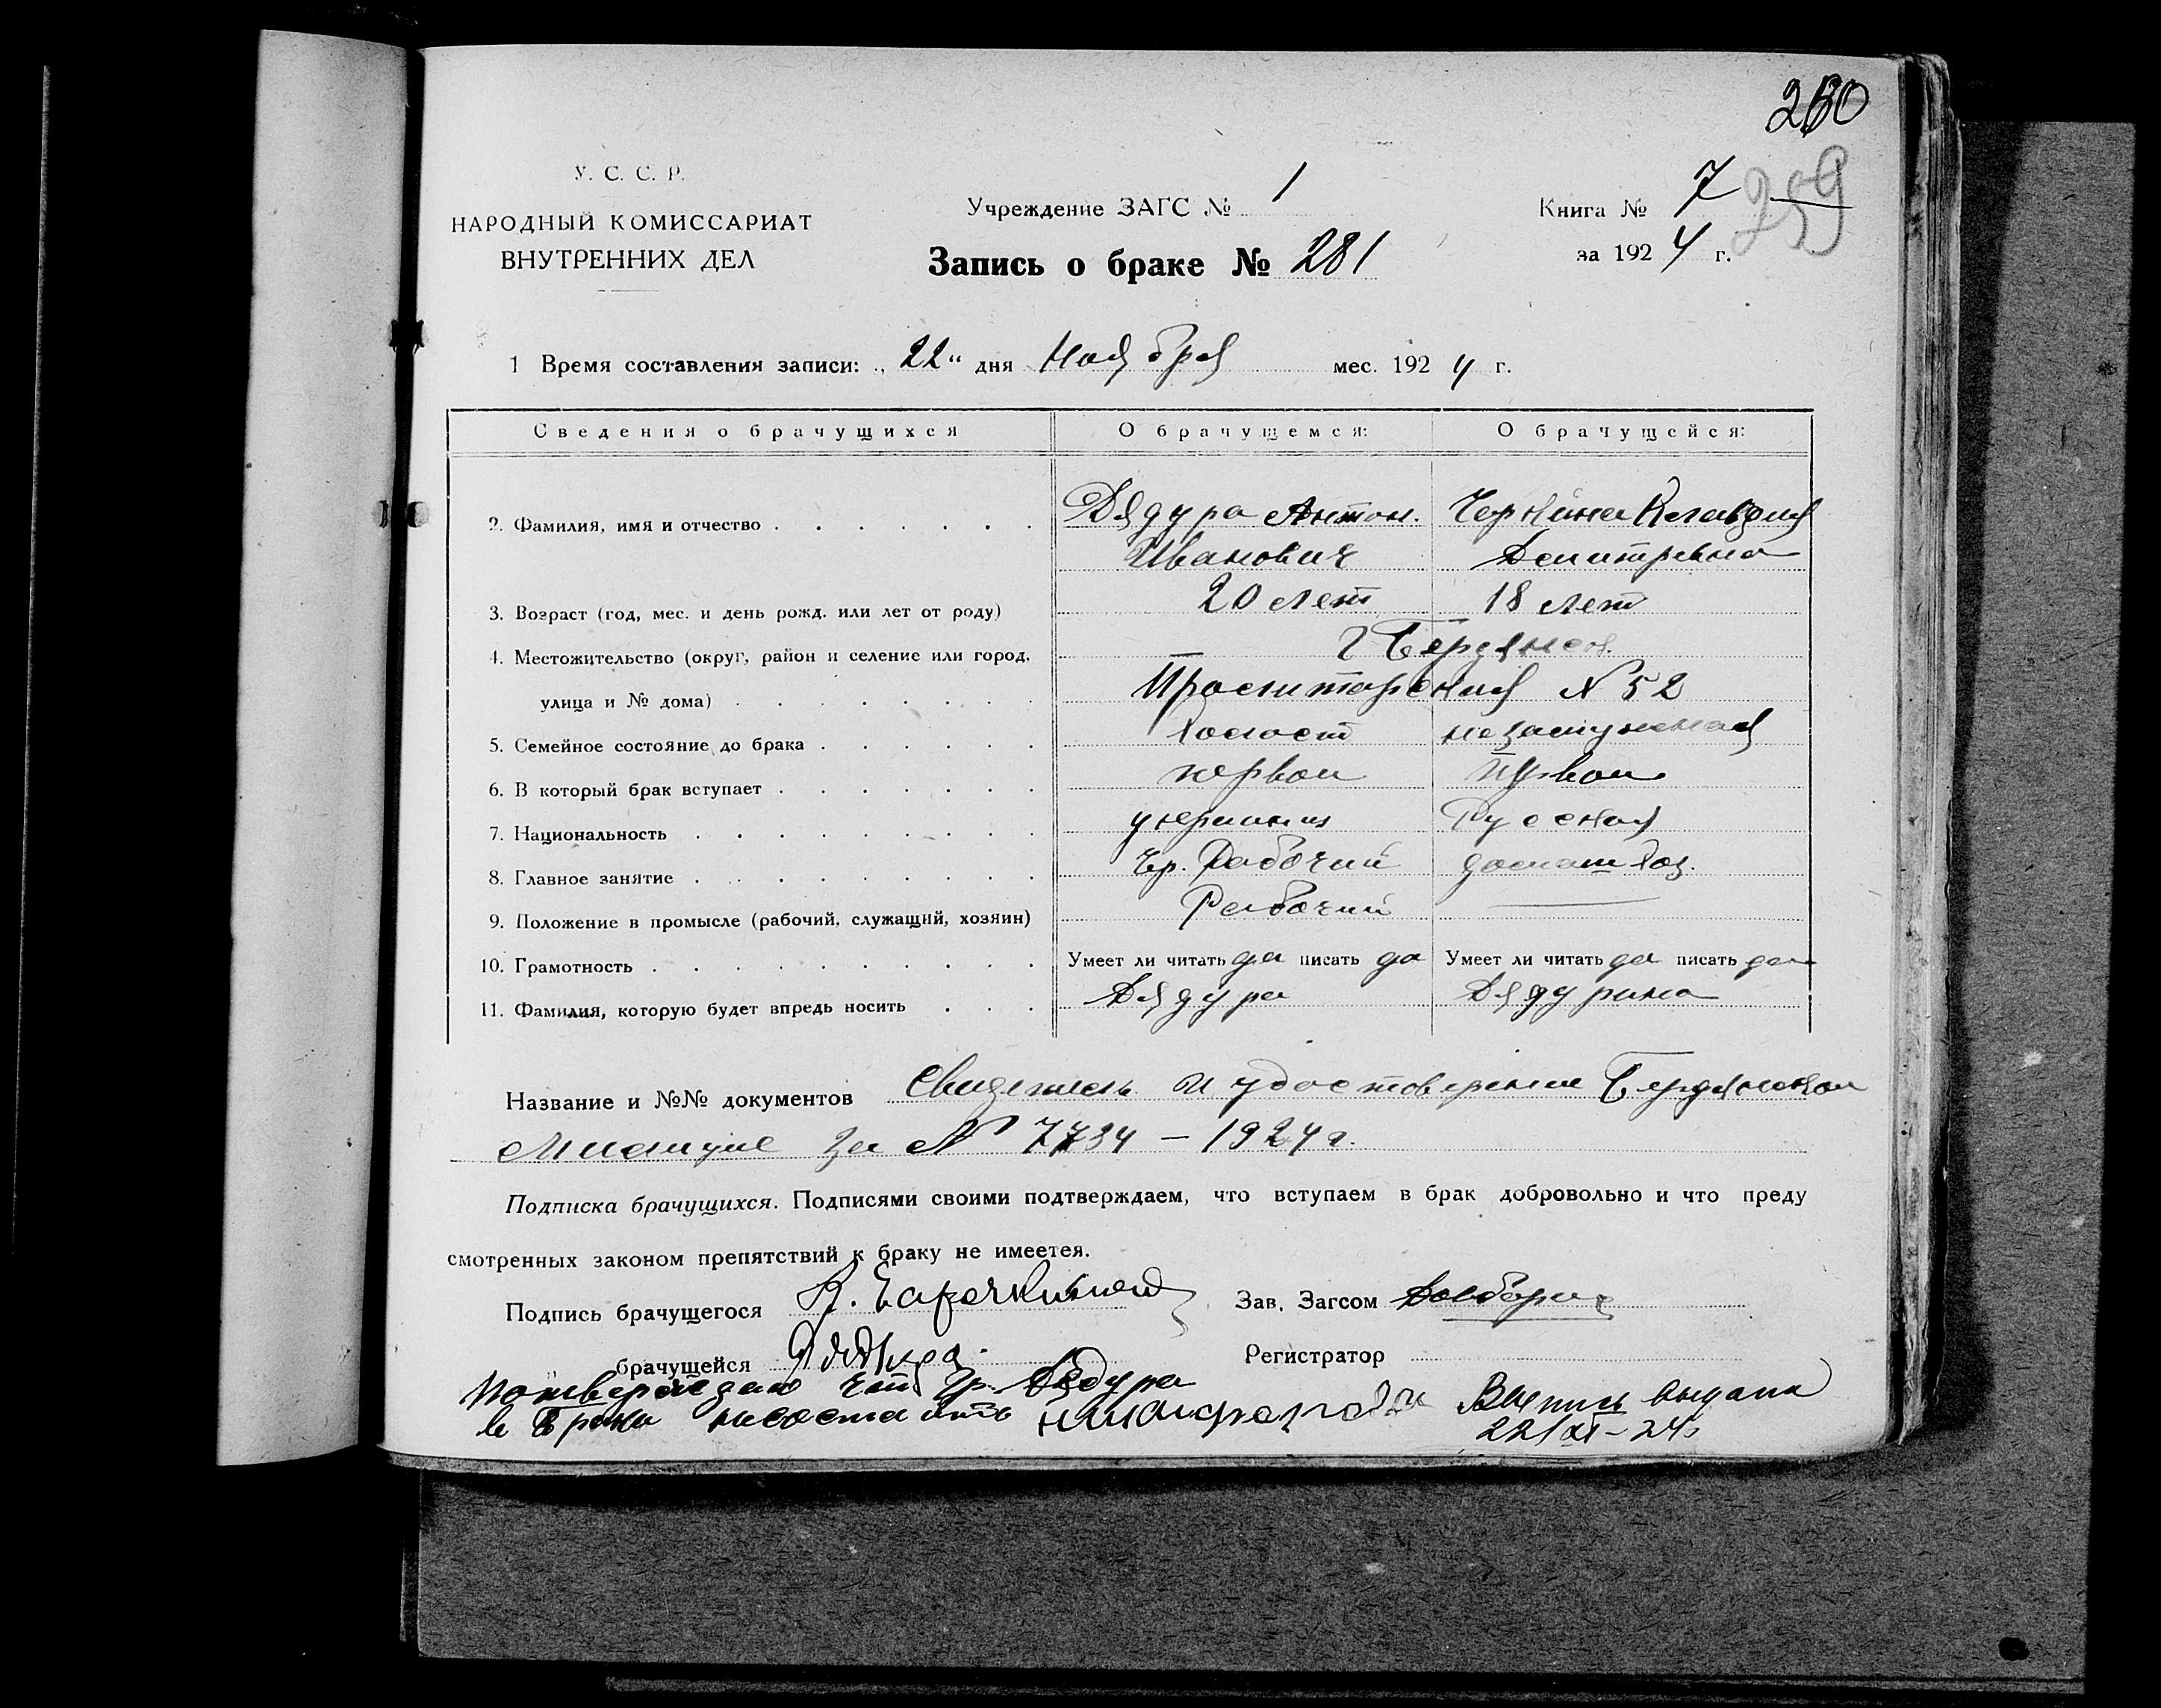 260
259
У. С. С. Р.
НАРОДНЫЙ КОМИССАРИАТ
ВНУТРЕННИХ ДЕЛ
Учреждение ЗАГС № 1
Запись о браке № 281
Книга № 7
за 1924 г.
1 Время составления записи: „22“ дня Ноября мес. 1924 г.
Сведения о брачущихся О брачущемся: О брачущейся:
2. Фамилия, имя и отчество Дядура Антон. Клавдия
Иванович Дмитревна
3. Возраст (год, мес. и день рожд. или лет от роду) 20 лет 18 лет
4. Местожительство (округ, район и селение или город, г Бердянск.
улица и № дома) N 52
5. Семейное состояние до брака холост незамужная
6. В который брак вступает первой первой
7. Национальность украинец Русская
8. Главное занятие Чр. Рабочий домаш хоз.
9. Положение в промысле (рабочий, служащий, хозяин) Рабочий —
10. Грамотность Умеет ли читать да писать да Умеет ли читать да писать да
11. Фамилия, которую будет впредь носить Дядура Дядурина
Название и №№ документов и удостоверение Бердянской
Милиции за N 7734 — 1924 г.
Подписка брачущихся. Подписями своими подтверждаем, что вступаем в брак добровольно и что преду
смотренных законом препятствий к браку не имеетея.
Подпись брачущегося
Зав. Загсом
брачущейся
Регистратор
Потверждаю что гр. Дядура
в браке несостоить
Выпись выдана
22/XI–24